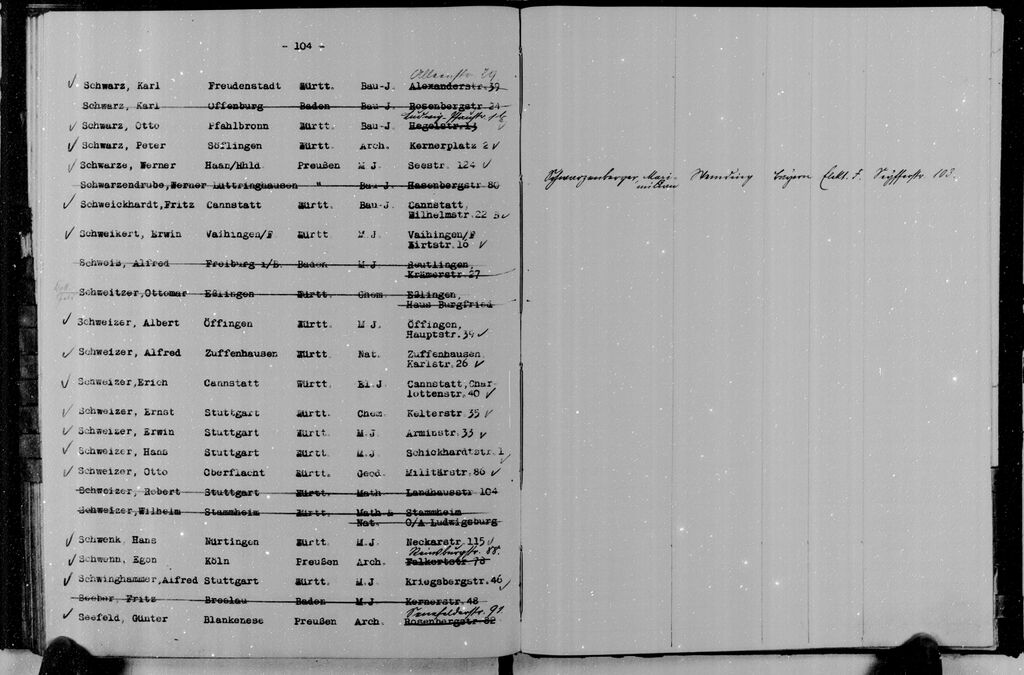 - 104 -
Alleenstr. 29
✓ Schwarz, Karl Freudenstadt Württ. Bau-J. Alexanderstr.39
Schwarz, Karl Offenburg Baden Bau-J. Rosenbergstr 24
Ludwig-Pfaustr.
✓ Schwarz, Otto Pfahlbronn Württ. Bau-J. Hegelstr.
✓ Schwarz, Peter Söflingen Württ. Arch. Kernerplatz 2 ✓
✓ Schwarze, Werner Haan/Rhld. Preußen M.J. Seestr. 124 ✓
Schwarzendrube,Werner Lüttringhausen " Bau-J. Hasenbergstr 80
✓ Schweickhardt,Fritz Cannstatt Württ. Bau-J. Cannstatt,
Wilhelmstr.22 B ✓
✓ Schweikert, Erwin Vaihingen/F Württ. M.J. Vaihingen/F
Hirtstr.16 ✓
Schweiß, Alfred Freiburg i/B. Baden M.J. Reutlingen,
Krämerstr.27
Schweitzer,Ottomar Eßlingen Württ. Chem. Eßlingen,
Haus Burgfried
✓ Schweizer, Albert Öffingen Württ. M.J. Öffingen,
Hauptstr.39 ✓
✓ Schweizer, Alfred Zuffenhausen Württ. Nat. Zuffenhausen
Karlstr.26 ✓
✓ Schweizer,Erich Cannstatt Württ. El.J. Cannstatt,Char-
lottenstr.40 ✓
✓ Schweizer, Ernst Stuttgart Württ. Chem. Kelterstr 35 ✓
✓ Schweizer, Erwin Stuttgart Württ. M.J. Arminstr.33 ✓
✓ Schweizer, Hans Stuttgart Württ. M.J. Schickhardtstr.1 ✓
✓ Schweizer, Otto Oberflacht Württ. Geod. Militärstr.86 ✓
Schweizer, Robert Stuttgart Württ. Math. Landhausstr 104
Schweizer,Wilhelm Stammheim Württ. Math.& Stammheim
Nat. O/A Ludwigsburg
✓ Schwenk, Hans Nürtingen Württ. M.J. Neckarstr.115 ✓
Reinsburgstr. 88.
✓ Schwenn, Egon Köln Preußen Arch. Falkertstr 78
✓ Schwinghammer,Alfred Stuttgart Württ. M.J. Kriegsbergstr.46 ✓
Seeber, Fritz Breslau Baden M.J. Kernerstr.48
Senefelderstr. 91
✓ Seefeld, Günter Blankenese Preußen Arch. Rosenbergstr 82
Schwarzenberger, Maxi- Wemding Bayern Elekt. J. Seyfferstr. 103.
milian